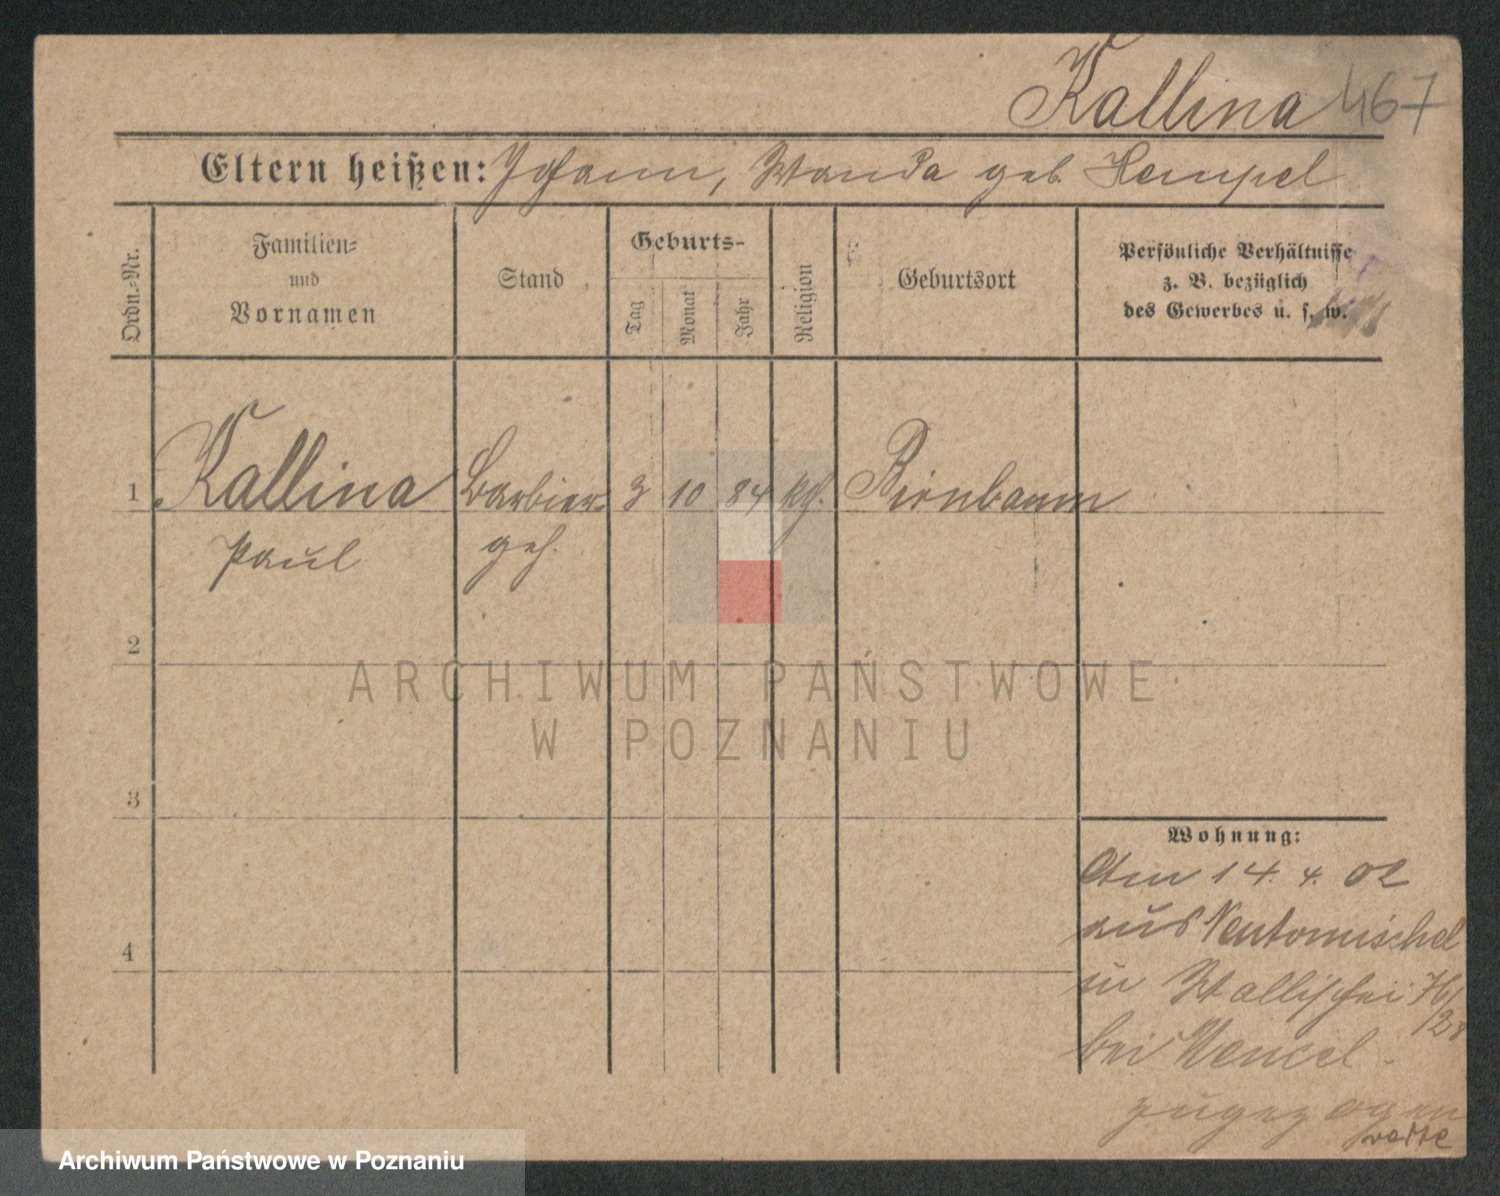 Kallina 467
Eltern heißen: Johann, Wanda geb. Hempel
Ordn.-Nr.
Familien-
und
Vornamen
Stand
Geburts-
Tag
Monat
Jahr
Religion
Geburtsort
Persönliche Verhältnisse
z. B. bezüglich
des Gewerbes u. s. w.
1 Kallina Barbier- 3 10 84 kth. Birnbaum
Paul geh.
2
3
4
Wohnung:
Am 14. 4. 02
aus Neutomischel
in Wallischei 76/
bei Wencel
zugezogen
ARCHIWUM PAŃSTWOWE
W POZNANIU
Archiwum Państwowe w Poznaniu